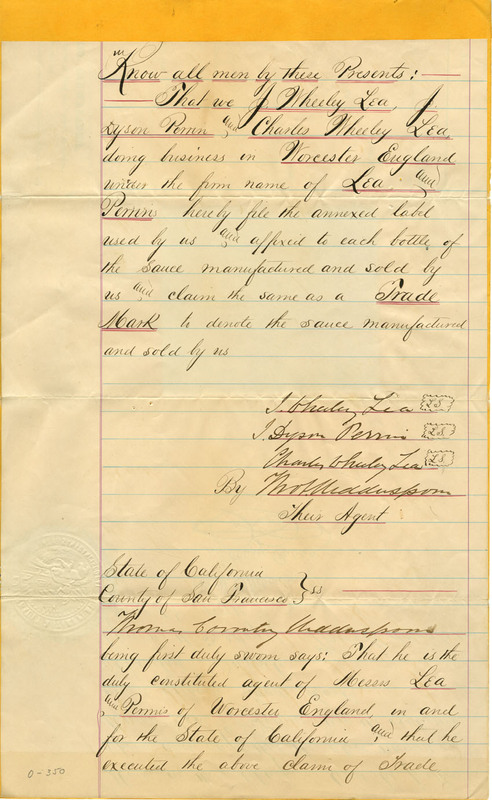 Know all men by these Presents:
That we J Wheeley Lea, J.
Dyson Perrin and Charles Wheeley Lea,
doing business in Worcester England
under the firm name of Lea and
Perrins hereby file the annexed label
used by us and affixed to each bottle of
the sauce manufactured and sold by
us and claim the same as a Trade
Mark to denote the sauce manufactured
and sold by us
J. Wheeley Lea L.S.
J. Dyson Perrins L.S.
Charles Wheeley Lea L.S.
By
Their Agent
State of California
County of San Francisco } ss
Thomas
being first duly sworn says: That he is the
duly constituted agent of Messrs Lea
and Perrins of Worcester England in and
for the State of California and that he
executed the above claim of Trade
0-350